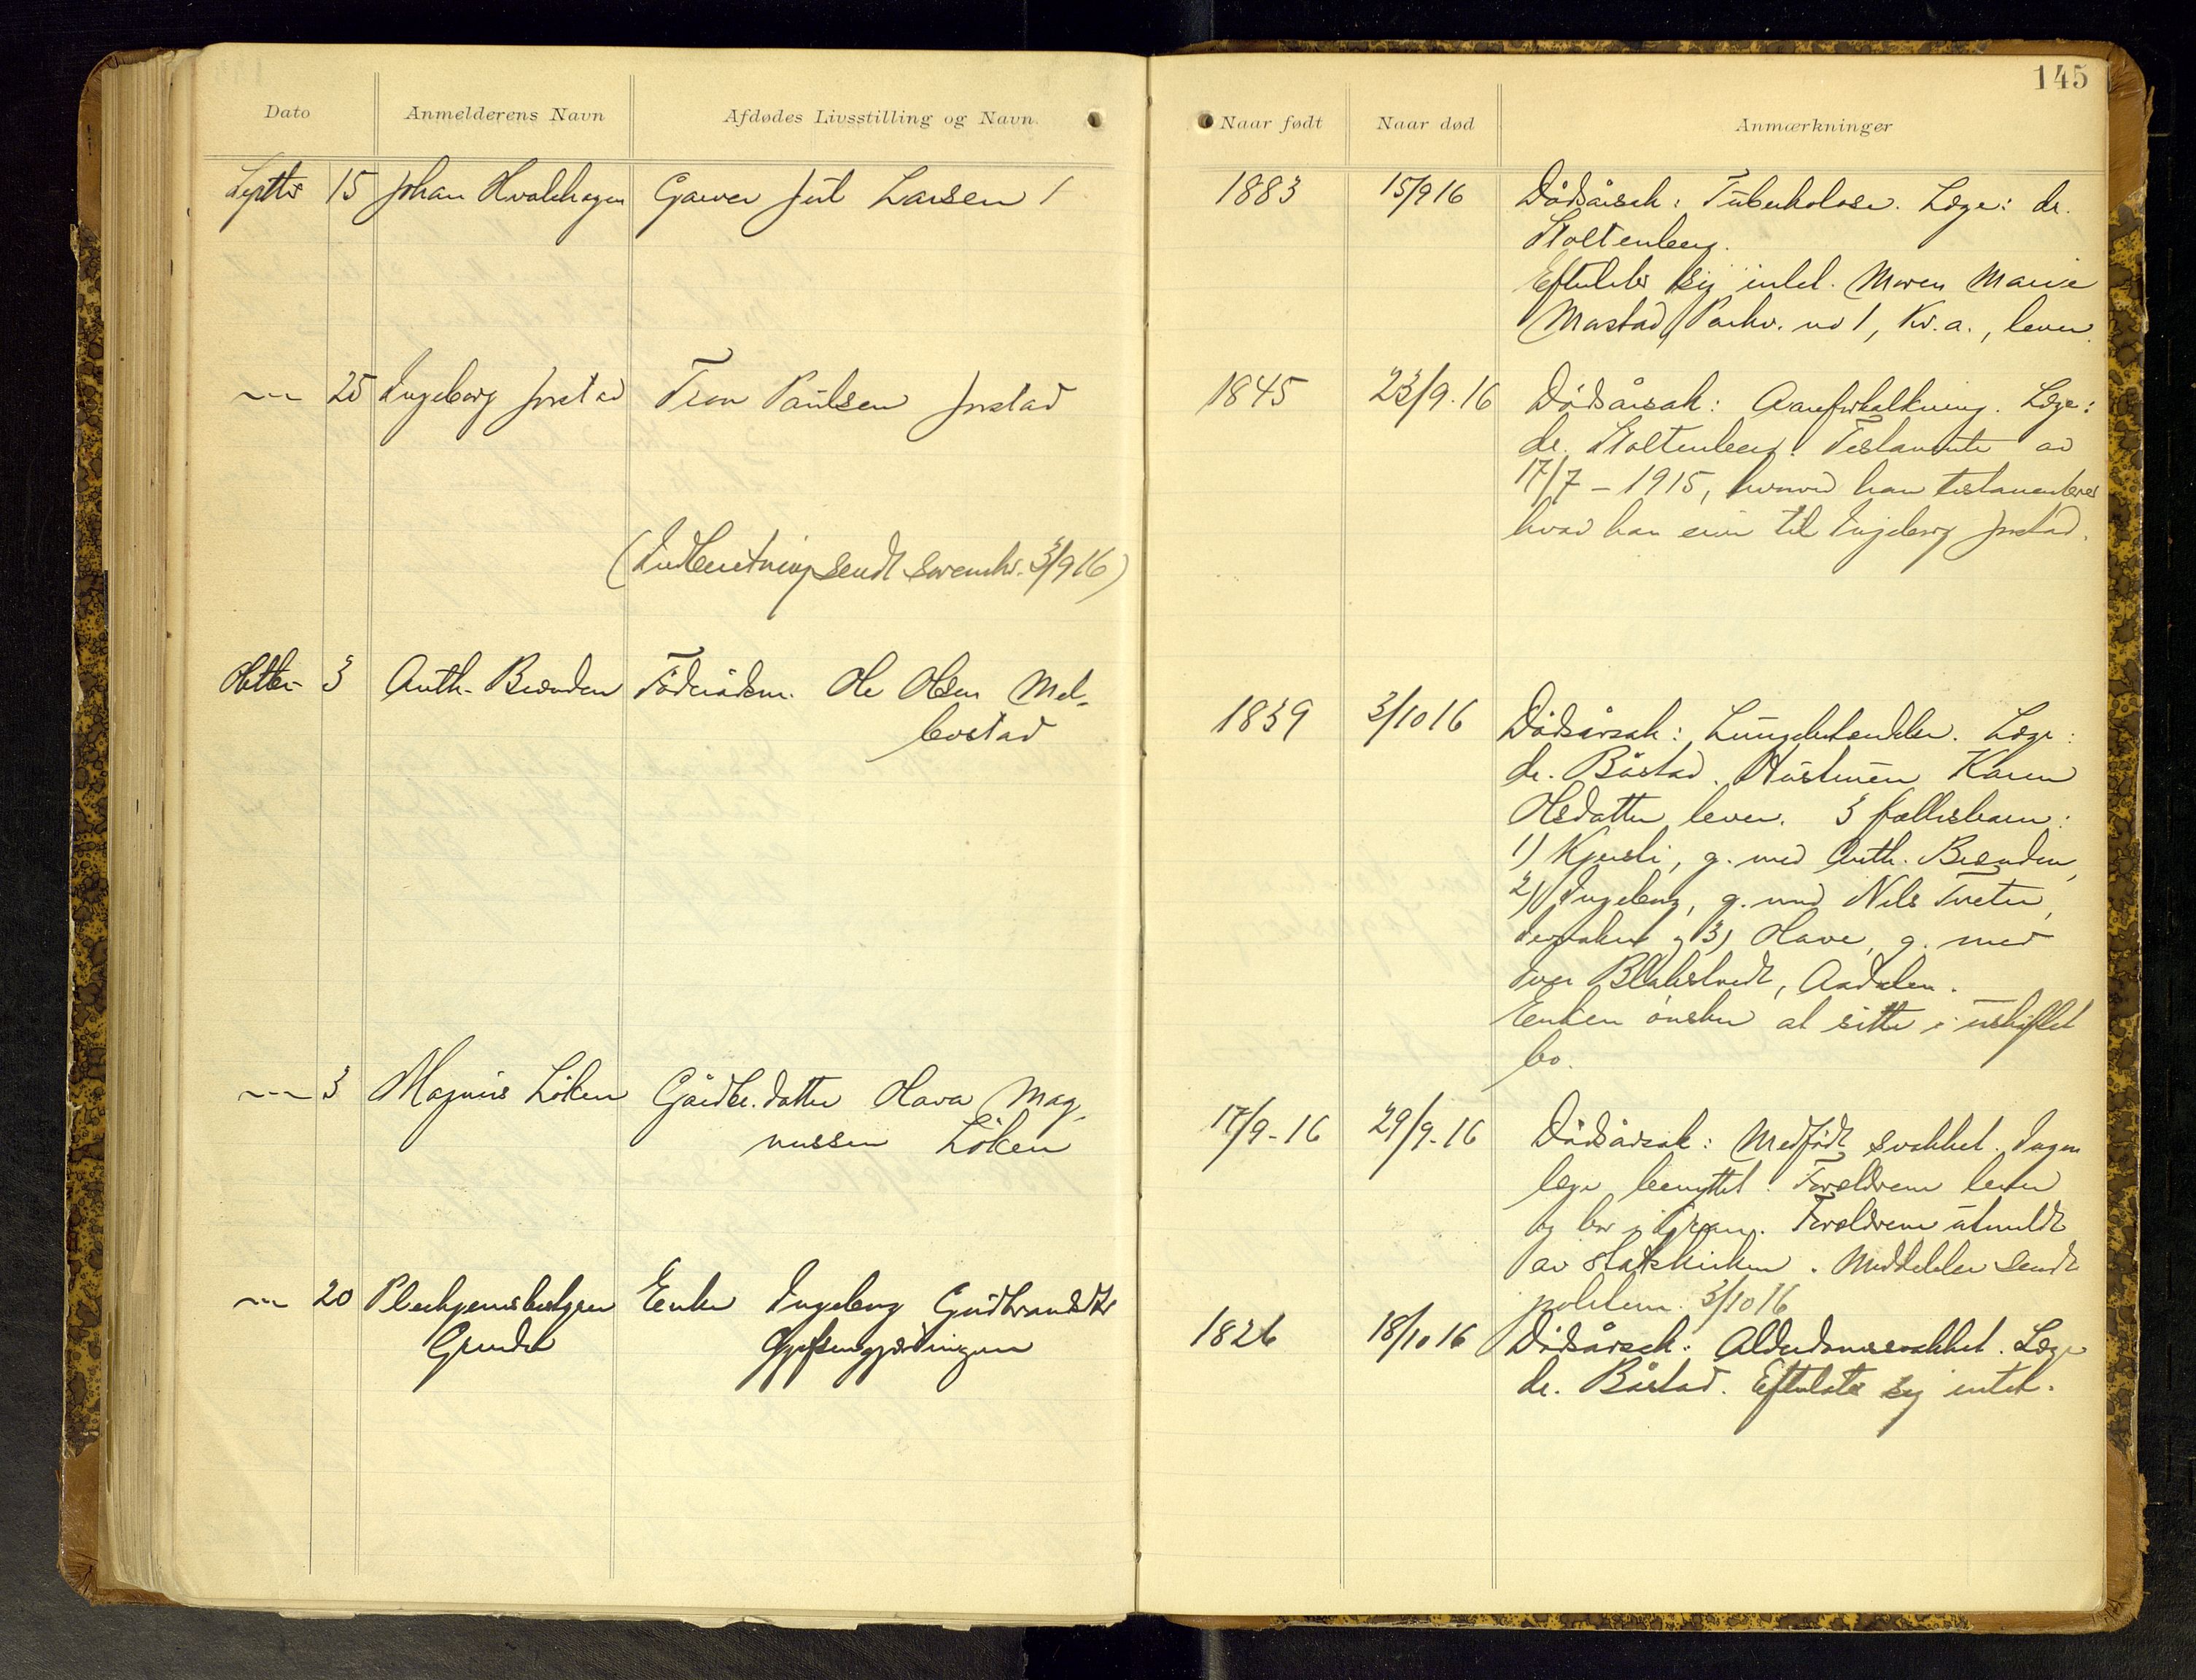 145
Dato
Anmelderens Navn
Afdødes Livsstilling og Navn.
Naar født
Naar død
Anmærkninger
Septbr 15 Johan Hvalehagen Garver Jul Larsen 1883 15/9 16 Dödsårsak: Tuberkolose. Læge: dr.
Stoltenberg.
Efterlater sig intet. Moren Marie
Mastad, Parkv. no 1, Kr.a., lever.
25 Ingeborg Jorstad Tron Paulsen Jorstad 1845 23/9.16 Dödsårsak: Aareforkalkning. Læge:
dr. Stoltenberg. Testamente av
17/7 - 1915, hvorved han testamenterer
hvad han eier til Ingeborg Jorstad.
(Indberetning sendt sorenskr. 3/9 16)
Oktbr. 3 Anth. Brænden Föderådsm. Ole Olsen Mel-
bostad
1839 3/10 16 Dödsårsak: Lungebetændelse. Læge:
dr. Båstad. Hustruen Karen
Olsdatter lever. 3 fællesbarn:
1) Kjersti, g. med Anth. Brænden,
2) Ingeborg, g. med Nils Tveter,
Jevnaker og 3) Olave, g. med
Iver Blakstvedt, Aadalen.
Enken önsker at sitte i uskiftet
bo.
3 Magnus Löken Gårdbr.datter Olava Mag-
nussen Löken
17/9-16 29/9-16 Dödsårsak: Medfödt svakhet. Ingen
læge benyttet. Forældrene lever
og bor i Gran. Forældrene utmeldt
av statskirken. Meddelelse sendt
politiet. 3/10 16
20 Pleehjemsbestyrer
Grinder
Enke Ingeborg Gudbrandsdtr
1826 18/10 16 Dödsårsak: Alderdomssvakhet. Læge
dr. Båstad. Efterlater sig intet.